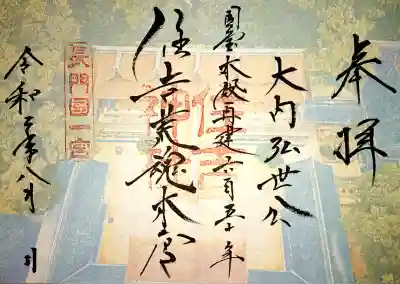 奉拝
大内弘世公
国宝本殿再建六百五十年
住吉荒魂本宮
長門國一宮
令和二年八月 日